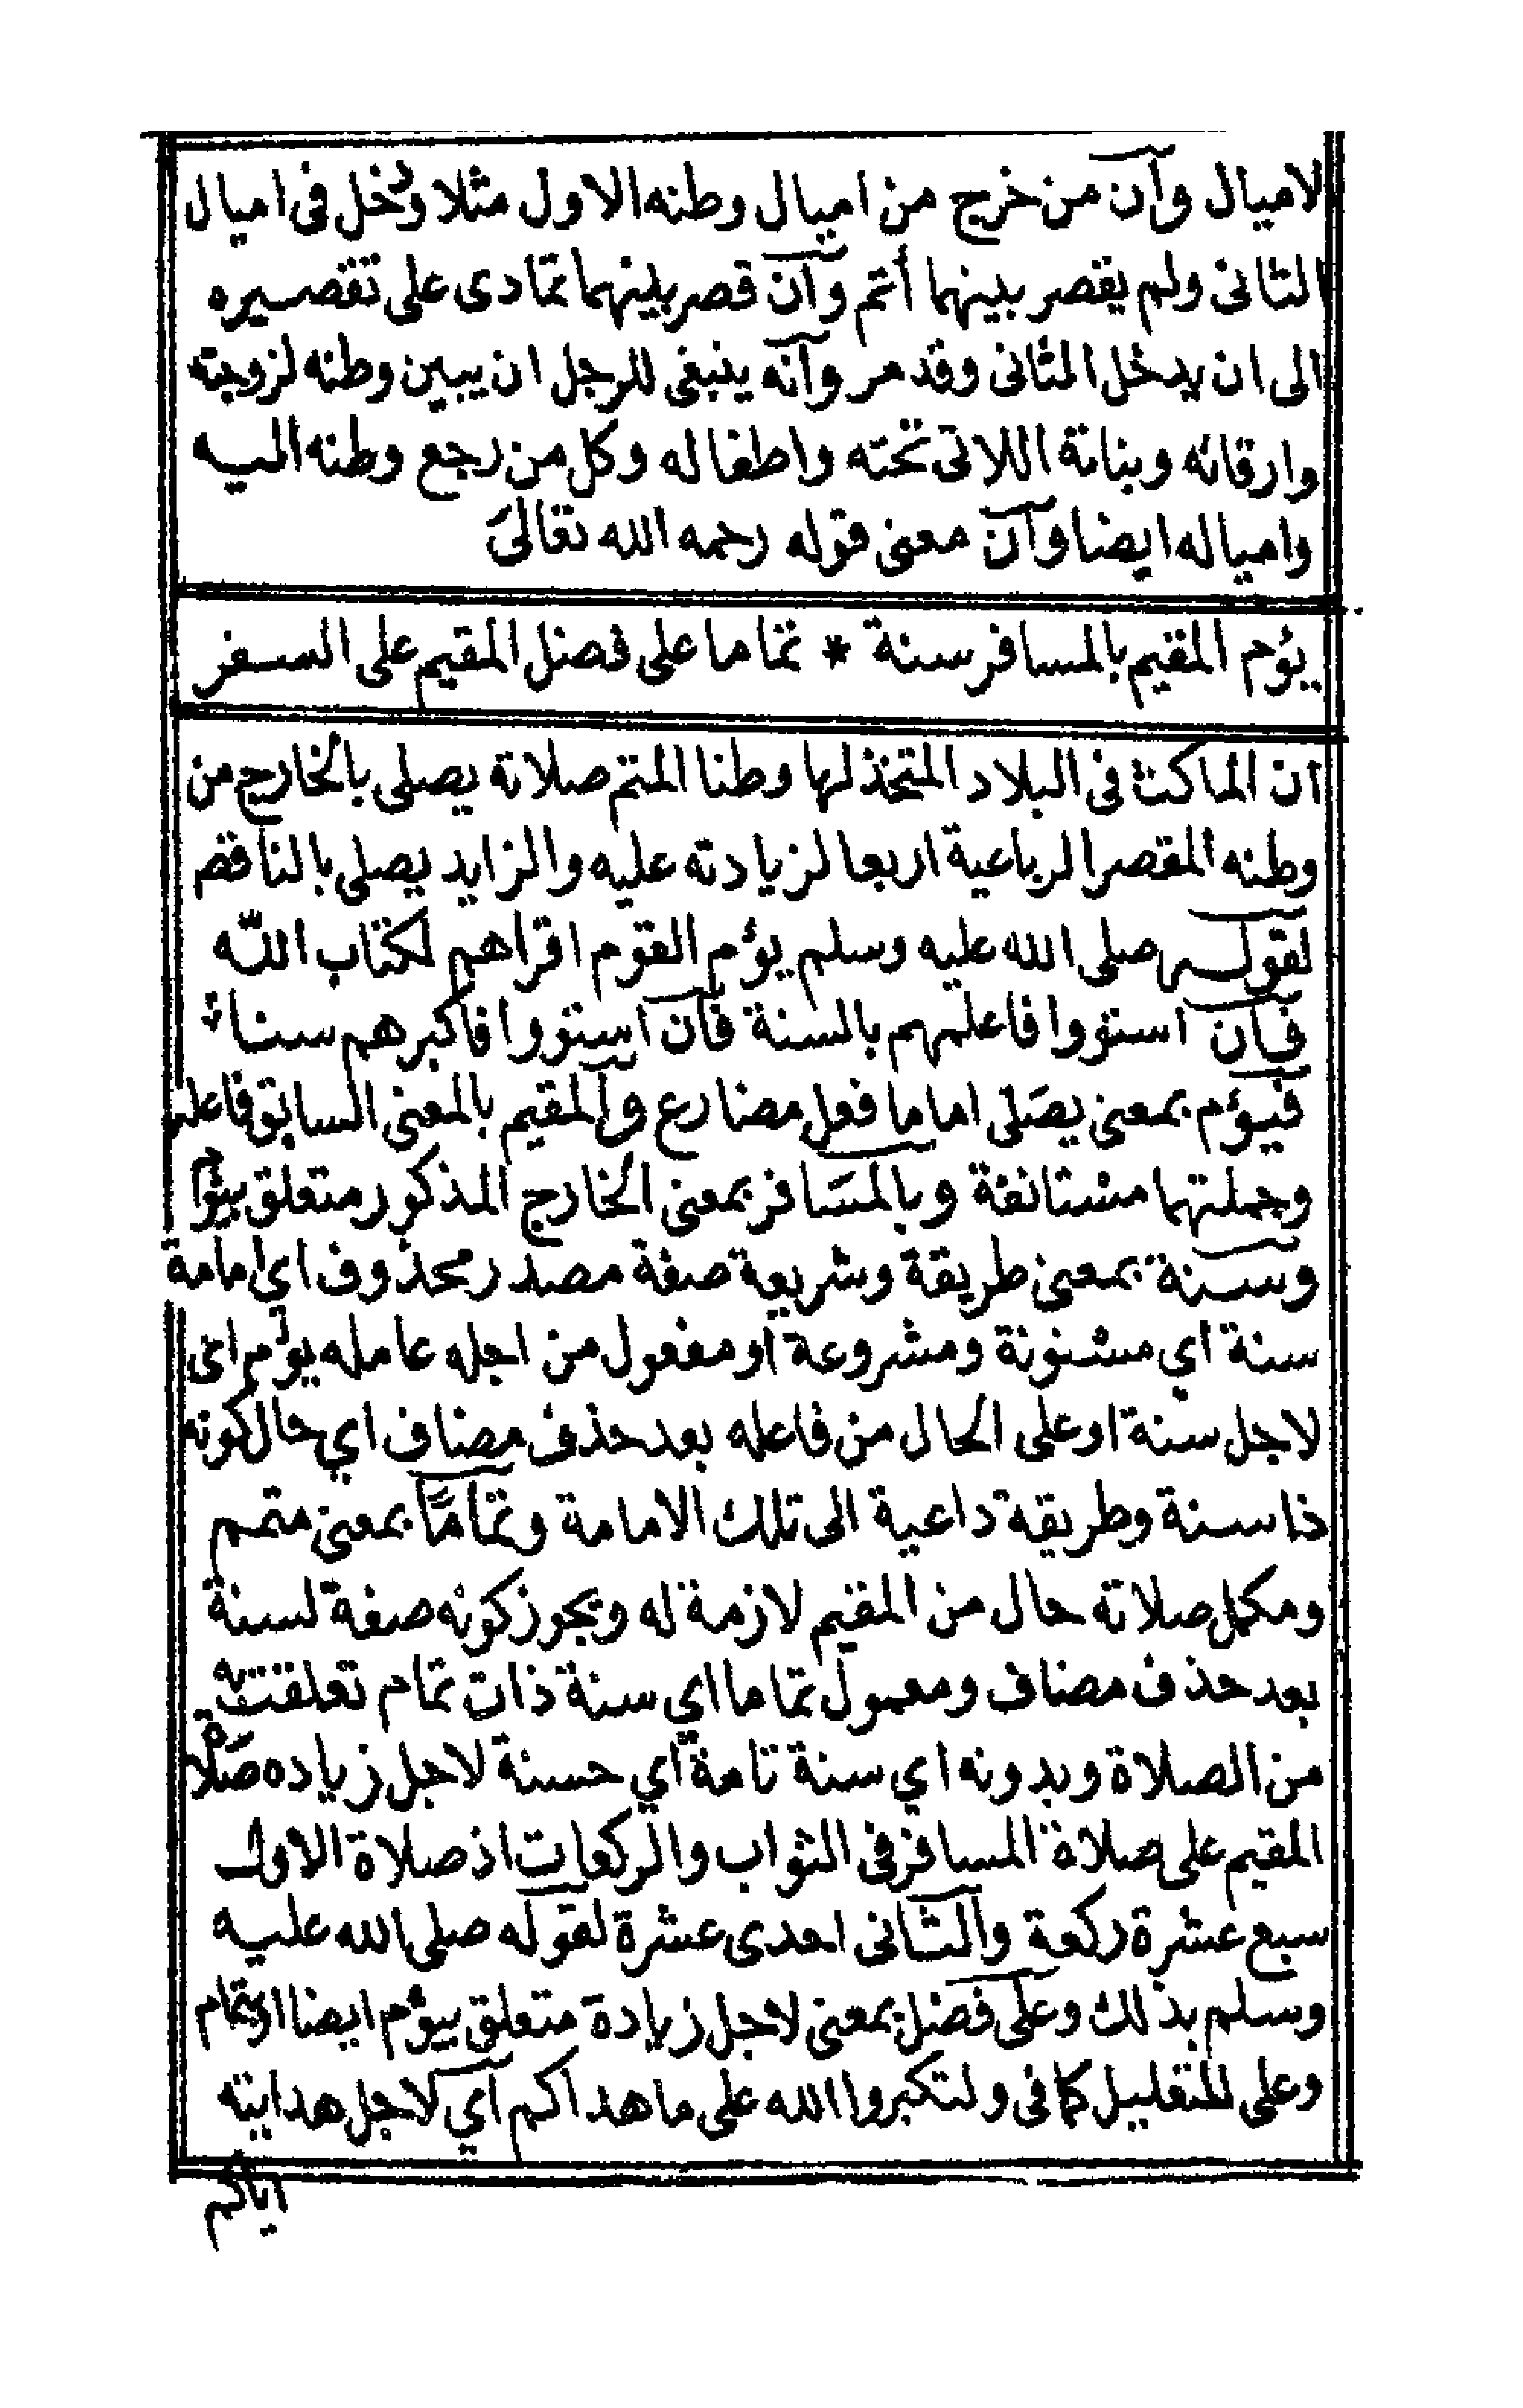 لاميال وآن من خرج من اميال وطنه الاول مثلا ودخل فى اميال
الثانى ولم يقصر بينهما أتم وآن قصر بينهما تمادى على تقصيره
الى ان يدخل الثانى وقد مر وآنه ينبغى للرجل ان يبين وطنه لزوجته
وارقائه وبناتة اللاتى تحته واطفاله وكل من رجع وطنه اليه
وامياله ايضا وآن معنى قوله رحمه الله تعالى
يؤم المقيم بالمسافر سنة * تماما على فضل المقيم على السفر
ان الماكث فى البلاد المتخذ لها وطنا المتم صلاته يصلى بالخارج من
وطنه المقصر الرباعية اربعا لزيادته عليه والزايد يصلى بالناقص
لقوله صلى الله عليه وسلم يؤم القوم اقراهم لكتاب الله
فان استووا فاعلمهم بالسنة فان استووا فاكبرهم سنا
فيؤم بمعنى يصلى اماما فعل مضارع والمقيم بالمعنى السابق فاعله
وجملتهما مستانفة وبالمسافر بمعنى الخارج المذكور متعلق بيؤم
وسنة بمعنى طريقة وشريعة صفة مصدر محذوف اي امامة
سنة اي مسنونة ومشروعة او مفعول من اجله عامله يؤم اى
لاجل سنة او على الحال من فاعله بعد حذف مضاف اي حال كونه
ذا سنة وطريقة داعية الى تلك الامامة وتماما بمعنى متمم
ومكمل صلاته حال من المقيم لازمة له ويجوز كونه صفة لسنة
بعد حذف مضاف ومعمول تماما اي سنة ذات تمام تعلقت به
من الصلاة وبدونه اي سنة تامة اي حسنة لاجل زياده صلاة
المقيم على صلاة المسافر فى الثواب والركعات اذ صلاة الاول
سبع عشرة ركعة والثانى احدى عشرة لقوله صلى الله عليه
وسلم بذلك وعلى فضل بمعنى لاجل زيادة متعلق بيؤم ايضا او بتمام
وعلى للتعليل كما فى ولتكبروا الله على ما هداكم اي لاجل هدايته
اياكم